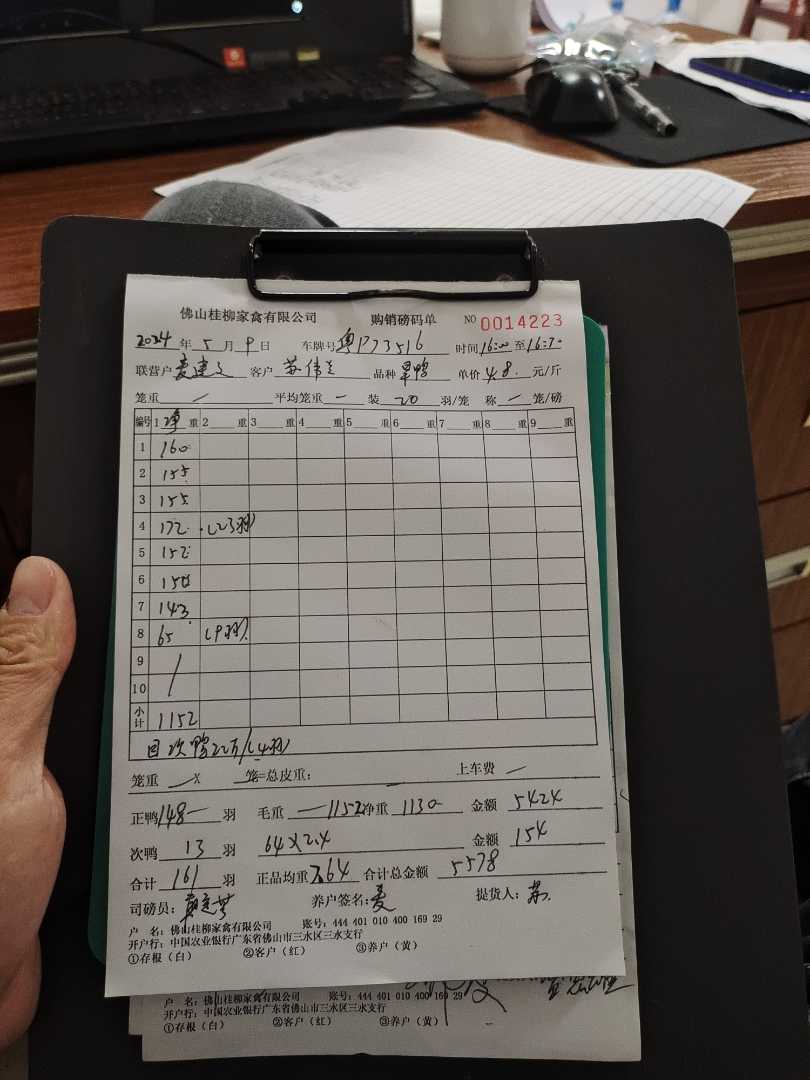 佛山桂柳家禽有限公司 购销磅码单 NO 0014223
2024 年 5 月 9 日 车牌号 粤P73516 时间 16:00 至
联营户 麦建文 客户 苏伟 品种 单价 4.8 元/斤
笼重 / 平均笼重 一 装 20 羽/笼 称 一 笼/磅
编号 1 净 重 2 重 3 重 4 重 5 重 6 重 7 重 8 重 9 重
1 160
2 155
3 155
4 172 (23羽)
5 152
6 150
7 143
8 65 (9羽)
9 /
10
小计 1152
回次鸭22斤/(4羽)
笼重 一 X 笼=总皮重: 一 上车费 一
正鸭 148 一 羽 毛重 一 1152 净重 1130 金额 5424
次鸭 13 羽 64×2.4 金额 154
合计 161 羽 正品均重 7.64 合计总金额 5578
司磅员: 养户签名: 麦 提货人: 苏
户 名: 佛山桂柳家禽有限公司 账号: 444 401 010 400 169 29
开户行: 中国农业银行广东省佛山市三水区三水支行
①存根(白) ②客户(红) ③养户(黄)
户 名: 佛山桂柳家禽有限公司 账号: 444 401 010 400 169 29
开户行: 中国农业银行广东省佛山市三水区三水支行
①存根(白) ②客户(红) ③养户(黄)